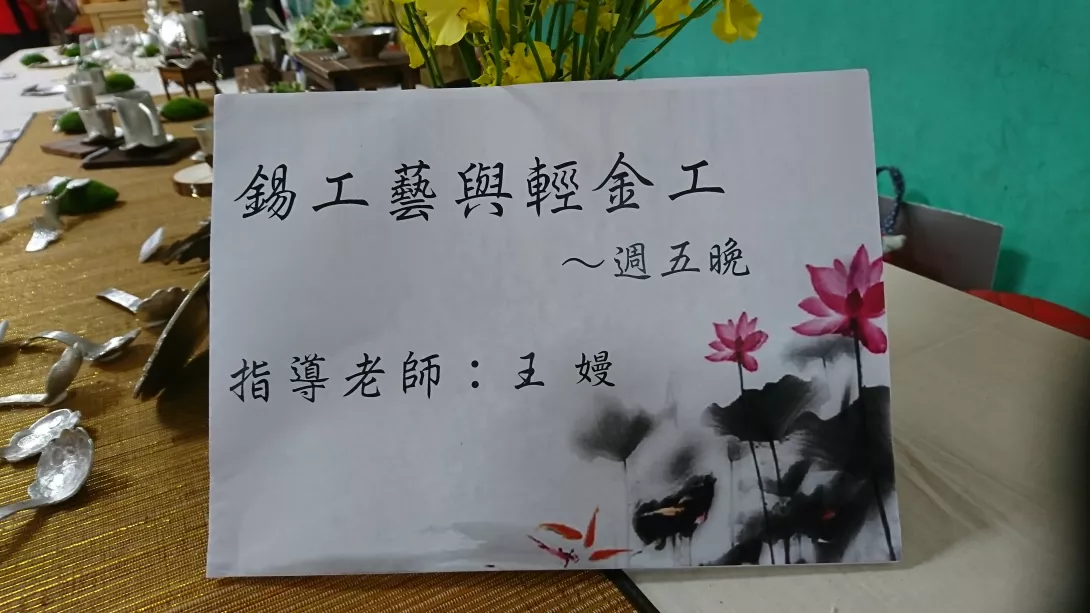 錫工藝與輕金工
～週五晚
指導老師：王 嫚